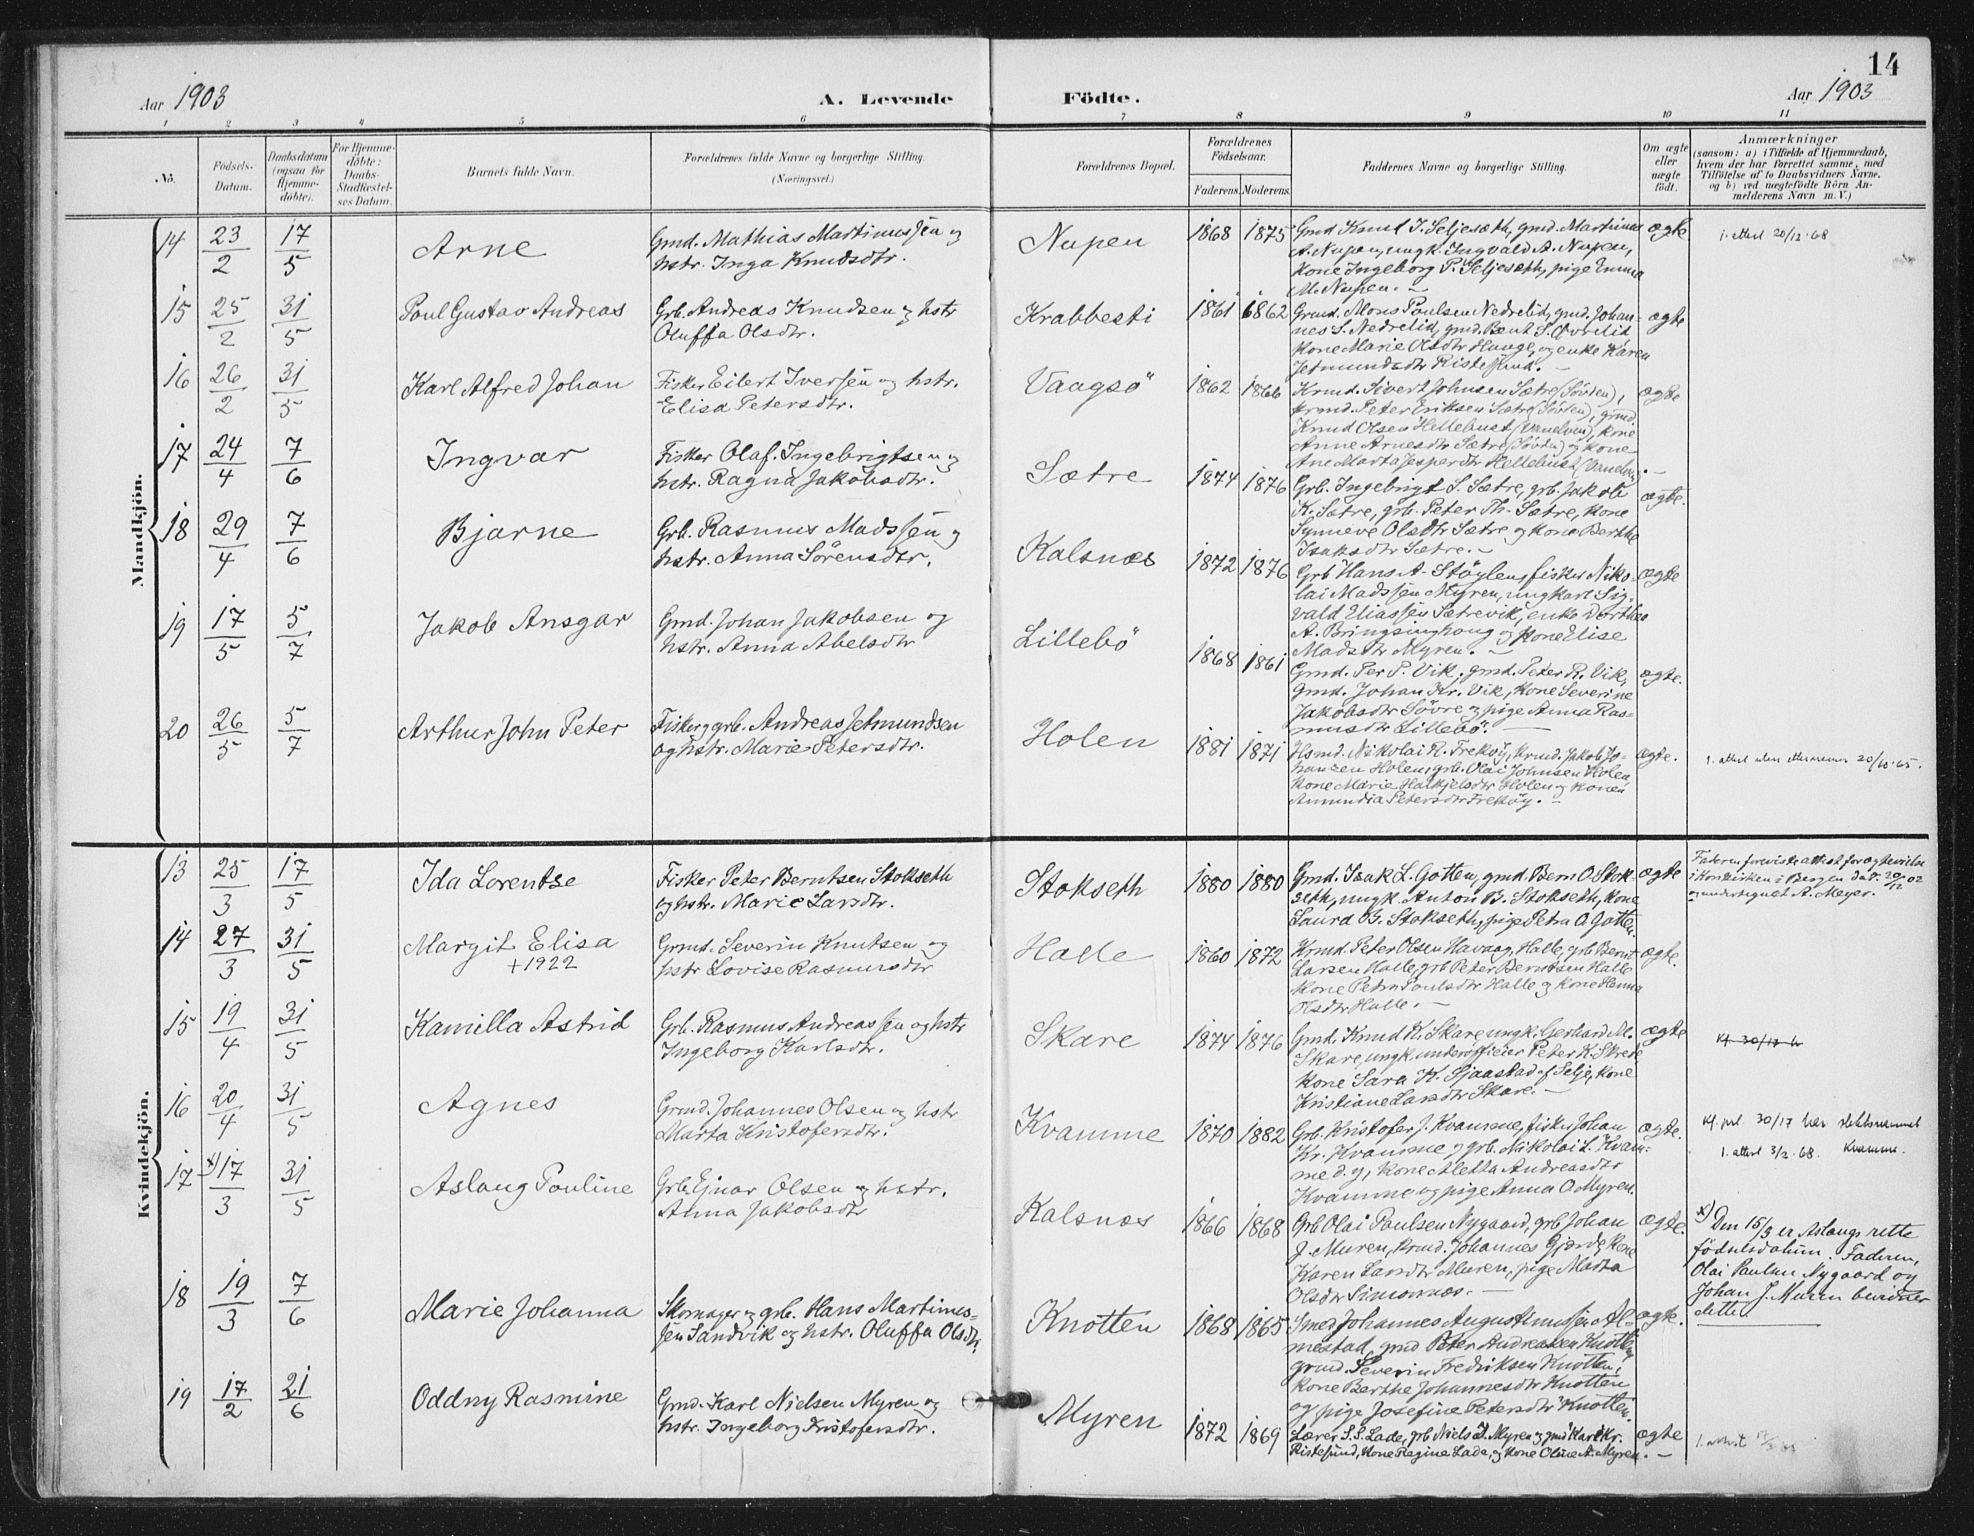 14
Aar 1903
A. Levende
Födte.
Aar 1903
1 2 3 4 5 6 7 8 9 10 11
No.
Födsels-
Datum.
Daabsdatum
(ogsaa for
Hjemme-
döbte).
For Hjemme-
döbte:
Daabs-
Stadfæstel-
ses Datum.
Barnets fulde Navn.
Forældrenes fulde Navne og borgerlige Stilling.
(Næringsvei.)
Forældrenes Bopæl.
Forældrenes
Födselsaar.
Faderens.
Moderens.
Faddernes Navne og borgerlige Stilling.
Om ægte
eller
uægte
födt.
Anmærkninger
(saasom: a) i Tilfælde af Hjemmedaab,
hvem der har forrettet samme, med
Tilföielse af to Daabsvidners Navne.
og b) ved uægtefödte Börn An-
melderens Navn m. V.)
Mandkjön.
14 23/2 17/5 Arne
Gmd. Mathias Martinussen og
hstr. Inga Knudsdtr.
Nupen 1868 1875
Gmd Knud J. Seljesæth, gmd. Martinus
A. Nupen, ungk. Ingvald A. Nupen,
kone Ingeborg P. Seljesæth, pige Emma
M. Nupen.
ægte
1. attest 20/12-68
15 25/2 31/5 Poul Gustav Andreas
Grb. Andreas Knudsen og hstr
Oluffa Olsdtr.
Krabbesti 1861 1862
Grmd. Mons Paulsen Nedrelid, gmd. Johan-
nes S. Nedrelid, gmd. Bent S. Øvrelid
kone Marie Olsdtr Hauge, og enke Karen
Jetmundsdtr Ristesund.
ægte
16 26/2 31/5 Karl Alfred Johan
Fisker Eilert Iversen og hstr.
Elisa Petersdtr.
Vaagsö 1862 1866
Krmd. Sivert Johnsen Sætre (Sövden),
krmd. Peter Eriksen Sætre (Sövden), grmd.
Knud Olsen Hellebust (Vanelven), kone
Anne Arnesdtr Sætre (Sövden) og kone
Ane Marta Jesperdtr Hellebust (Vanelven).
ægte
17 24/4 7/6 Ingvar
Fisker Olaf Ingebrigtsen og
hstr. Ragna Jakobsdtr.
Sætre 1874 1876
Grb. Ingebrigt S. Sætre, grb. Jakob
K. Sætre, grb. Peter Th. Sætre, kone
Synneve Olsdtr Sætre og kone Berthe
Isaksdtr Sætre.
ægte.
18 29/4 7/6 Bjarne
Grb. Rasmus Madssen og
hstr. Anna Sörensdtr.
Kalsnæs 1872 1876
Grb Hans A. Støylen, fisker Niko-
lai Madssen Myren, ungkarl Sig-
vald Eliassen Sætrevik, enke Dorthea
A. Bringsinghaug og kone Elise
Madsdtr Myren.
ægte
19 17/5 5/7 Jakob Ansgar
Gmd. Johan Jakobsen og
hstr. Anna Abelsdtr
Lillebö 1868 1861
Gmd. Per P. Vik, gmd. Peter R. Vik,
gmd. Johan Kr. Vik, kone Severine
Jakobsdtr Søvre og pige Anna Ras-
musdtr Lillebö.
ægte.
20 26/5 5/7 Arthur John Peter
Fisker og grb. Andreas Jetmundsen
og hstr. Marie Petersdtr.
Holen 1881 1871
Hsmd. Nikolai R. Frekøy, krmd. Jakob Jo-
hansen Holen, grb. Olai Johnsen Holen
kone Marie Halkjelsdtr Holen og kone
Amundia Petersdtr Frekøy.
ægte.
1. attest uten 20/10-65.
Kvindekjön.
13 25/3 17/5 Ida Lorentse
Fisker Peter Berntsen Stokseth
og hstr. Marie Larsdtr.
Stokseth 1880 1880
Gmd. Isak L. Gotten, gmd. Bern O. Stok-
seth, ungk. Anton B. Stokseth, kone
Laura B. Stokseth, pige Petra O. Gotten.
ægte
Faderen foreviste attest for ægtevielse
i Korskirken i Bergen dat. 20/12 02
undertegnet A. Meyer.
14 27/3 31/5 Margit Elisa
+1922
Grmd. Severin Knutsen og
hstr Lovise Rasmusdtr
Halle 1860 1872
Krmd. Peter Olsen Havaag, Halle, grb Bernt
Larsen Halle, grb Peter Berntsen Halle
kone Petra Paulsdtr Halle og kone Hanna
Olsdtr Halle.
ægte.
15 19/4 31/5 Kamilla Astrid
Grb. Rasmus Andreassen og hstr
Ingeborg Karlsdtr.
Skare 1874 1876
Gmd. Knud K. Skare, ungk. Gerhard M.
Skare, ungk. underofficier Peter K. Skrede
kone Sara K. Sjaastad af Selje, kone
Kristiane Larsdtr Skare.
ægte
16 20/4 31/5 Agnes
Grmd. Johannes Olsen og hstr
Marta Kristofersdtr.
Kvamme 1870 1882
Grb. Kristofer J. Kvamme, fisker Johan
Kr. Kvamme, grb. Nikolai L. Kvam-
me d.y., kone Aletta Andreasdtr
Kvamme og pige Anna O. Myren.
ægte.
Kf. prl. 30/17 har slektsnavnet
1. attest 3/2-68. Kvamme.
17 x) 17/3 31/5 Aslaug Pouline
Grb. Ejnar Olsen og hstr.
Anna Jakobsdtr
Kalsnæs 1866 1868
Grb Olai Paulsen Nygaard, grb Johan
J. Muren, krmd. Johannes Gjærde, kone
Karen Larsdtr Muren, pige Marta
Olsdtr Simonnæs.
ægte.
x) Den 15/3 er Aslaugs rette
födselsdatum. Faderen,
Olai Paulsen Nygaard og
Johan J. Muren bevidner
dette.
18 19/3 7/6 Marie Johanna
Skomager og grb. Hans Martines-
sen Sandvik og hstr. Oluffa Olsdtr.
Knotten 1868 1865
Smed Johannes Augustinussen Al-
mestad, gmd Peter Andreasen Knotten,
grmd. Severin Fredriksen Knotten,
kone Berthe Johannesdtr Knotten
og pige Josefine Petersdtr Knotten.
ægte.
19 17/2 21/6 Oddny Rasmine
Gmd. Karl Nielsen Myren og
hstr. Ingeborg Kristofersdtr.
Myren 1872 1869
Lærer S. S. Lade, grb Niels J. Myren og gmd Karl Kr.
Ristesund, kone Ragine Lade, og kone Oline A. Myren.
ægte